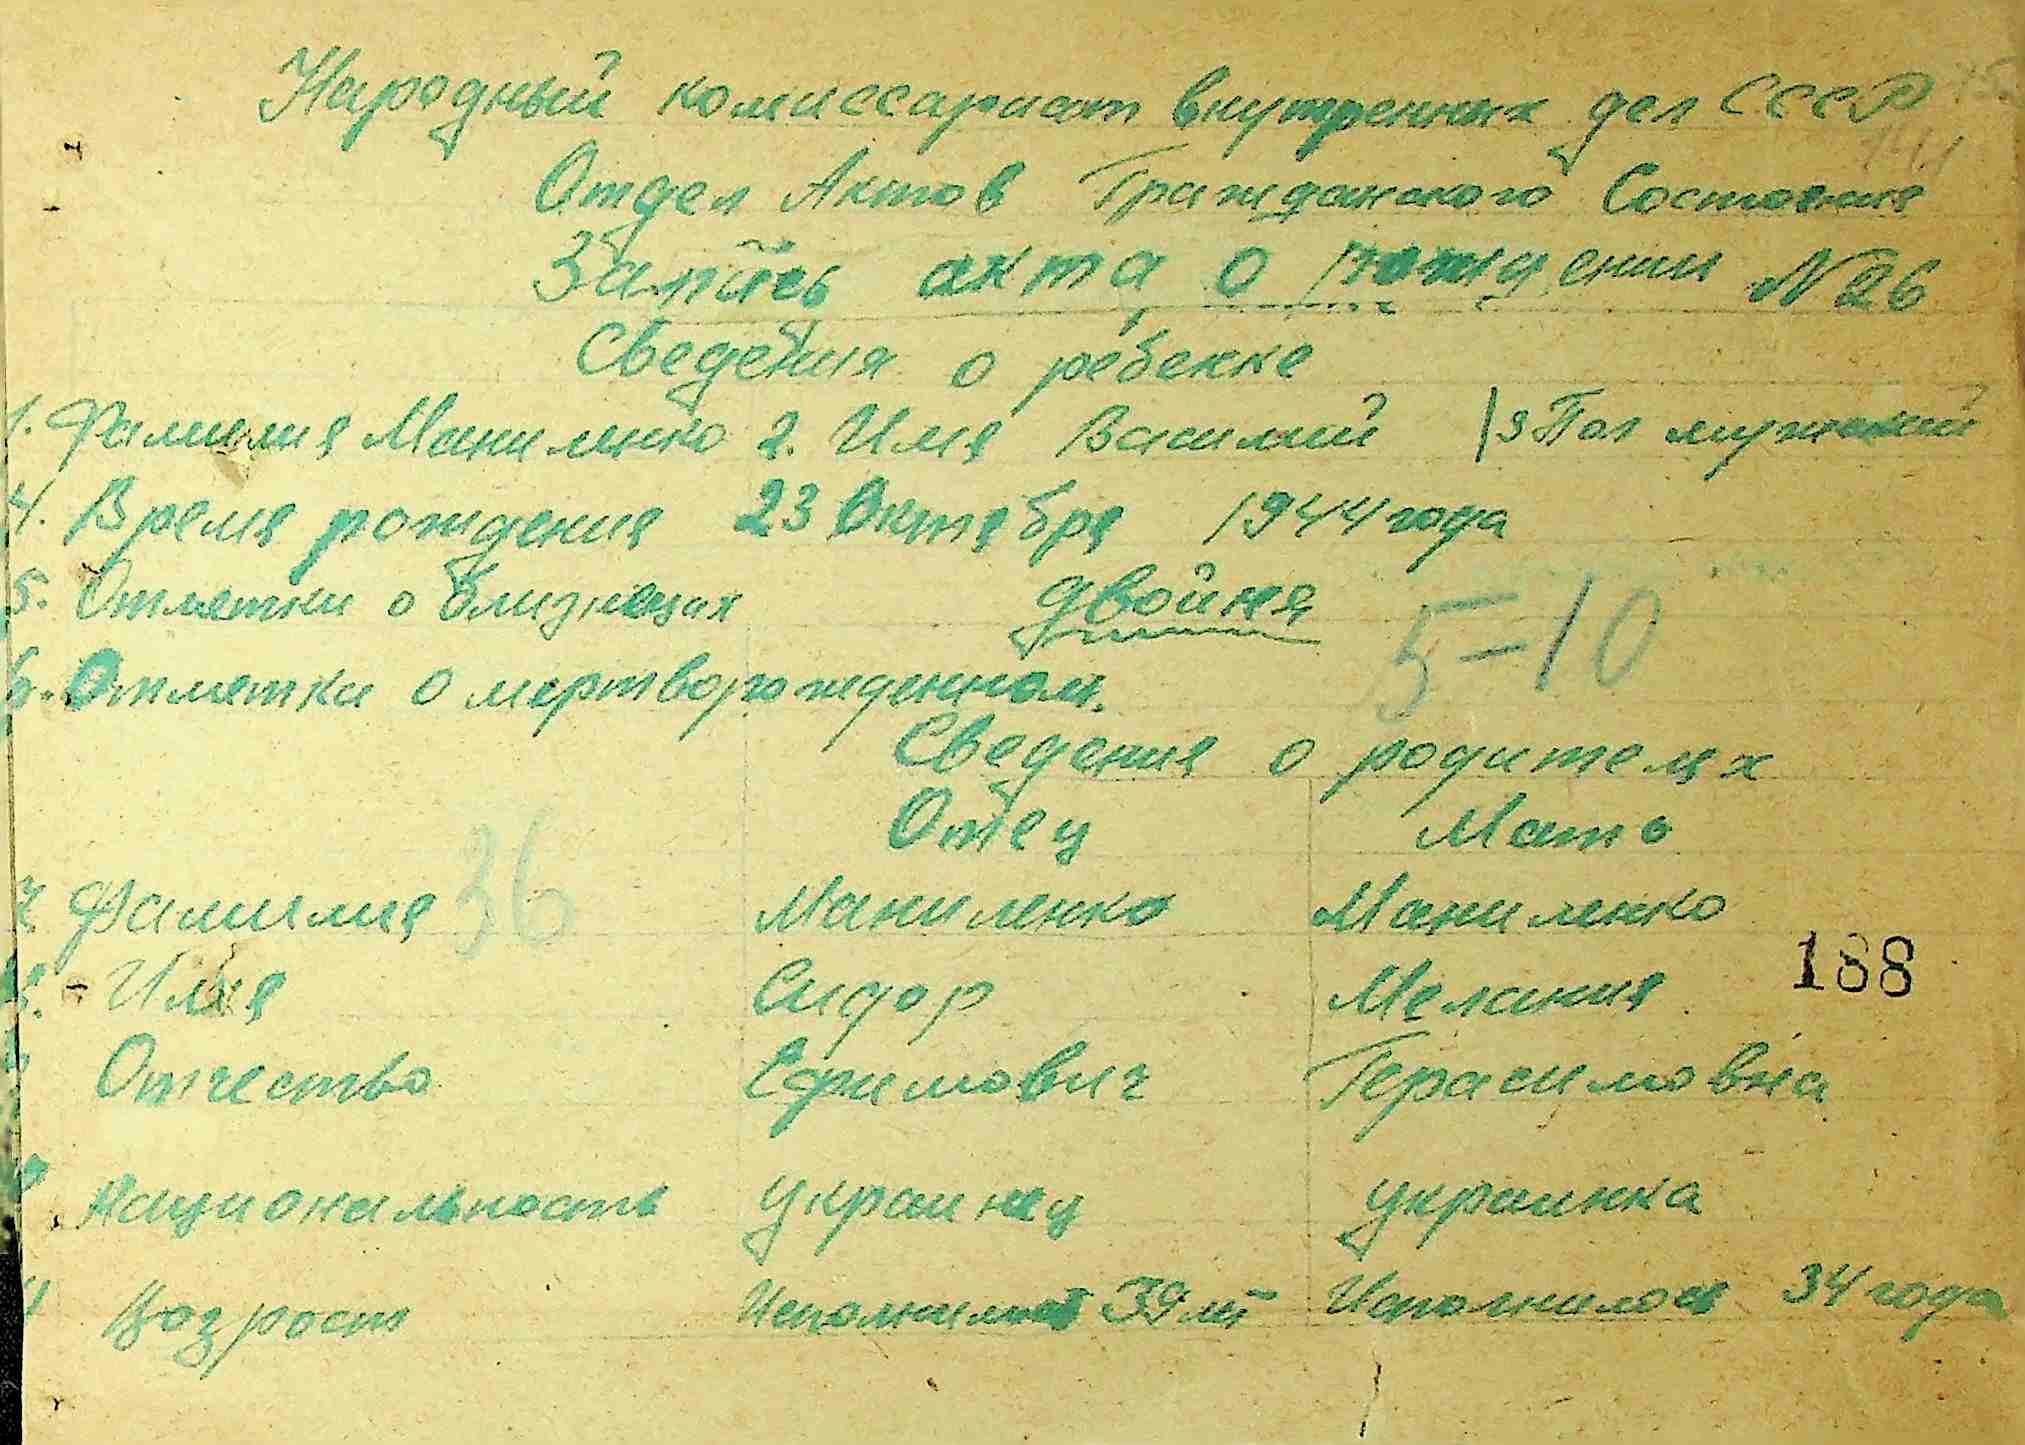 Народный комиссариат внутренних дел СССР
Отдел Актов Гражданского Состояния
Запись акта о рождении N 26
Сведения о ребенке
1. Фамилия Маниленко 2. Имя Василий 3 Пол мужской
4. Время рождения 23 Октября 1944 года
5. Отметки о близнецах двойня
5-10
6. Отметка о мертворожденном.
Сведения о родителях
Отец Мать
7 Фамилия 36 Маниленко Маниленко
188
8. Имя Сидор Мелания
Отчество Ефимович Герасимовна
Национальность украинец украинка
Возраст Исполнилось 39 лет Исполнилось 34 года